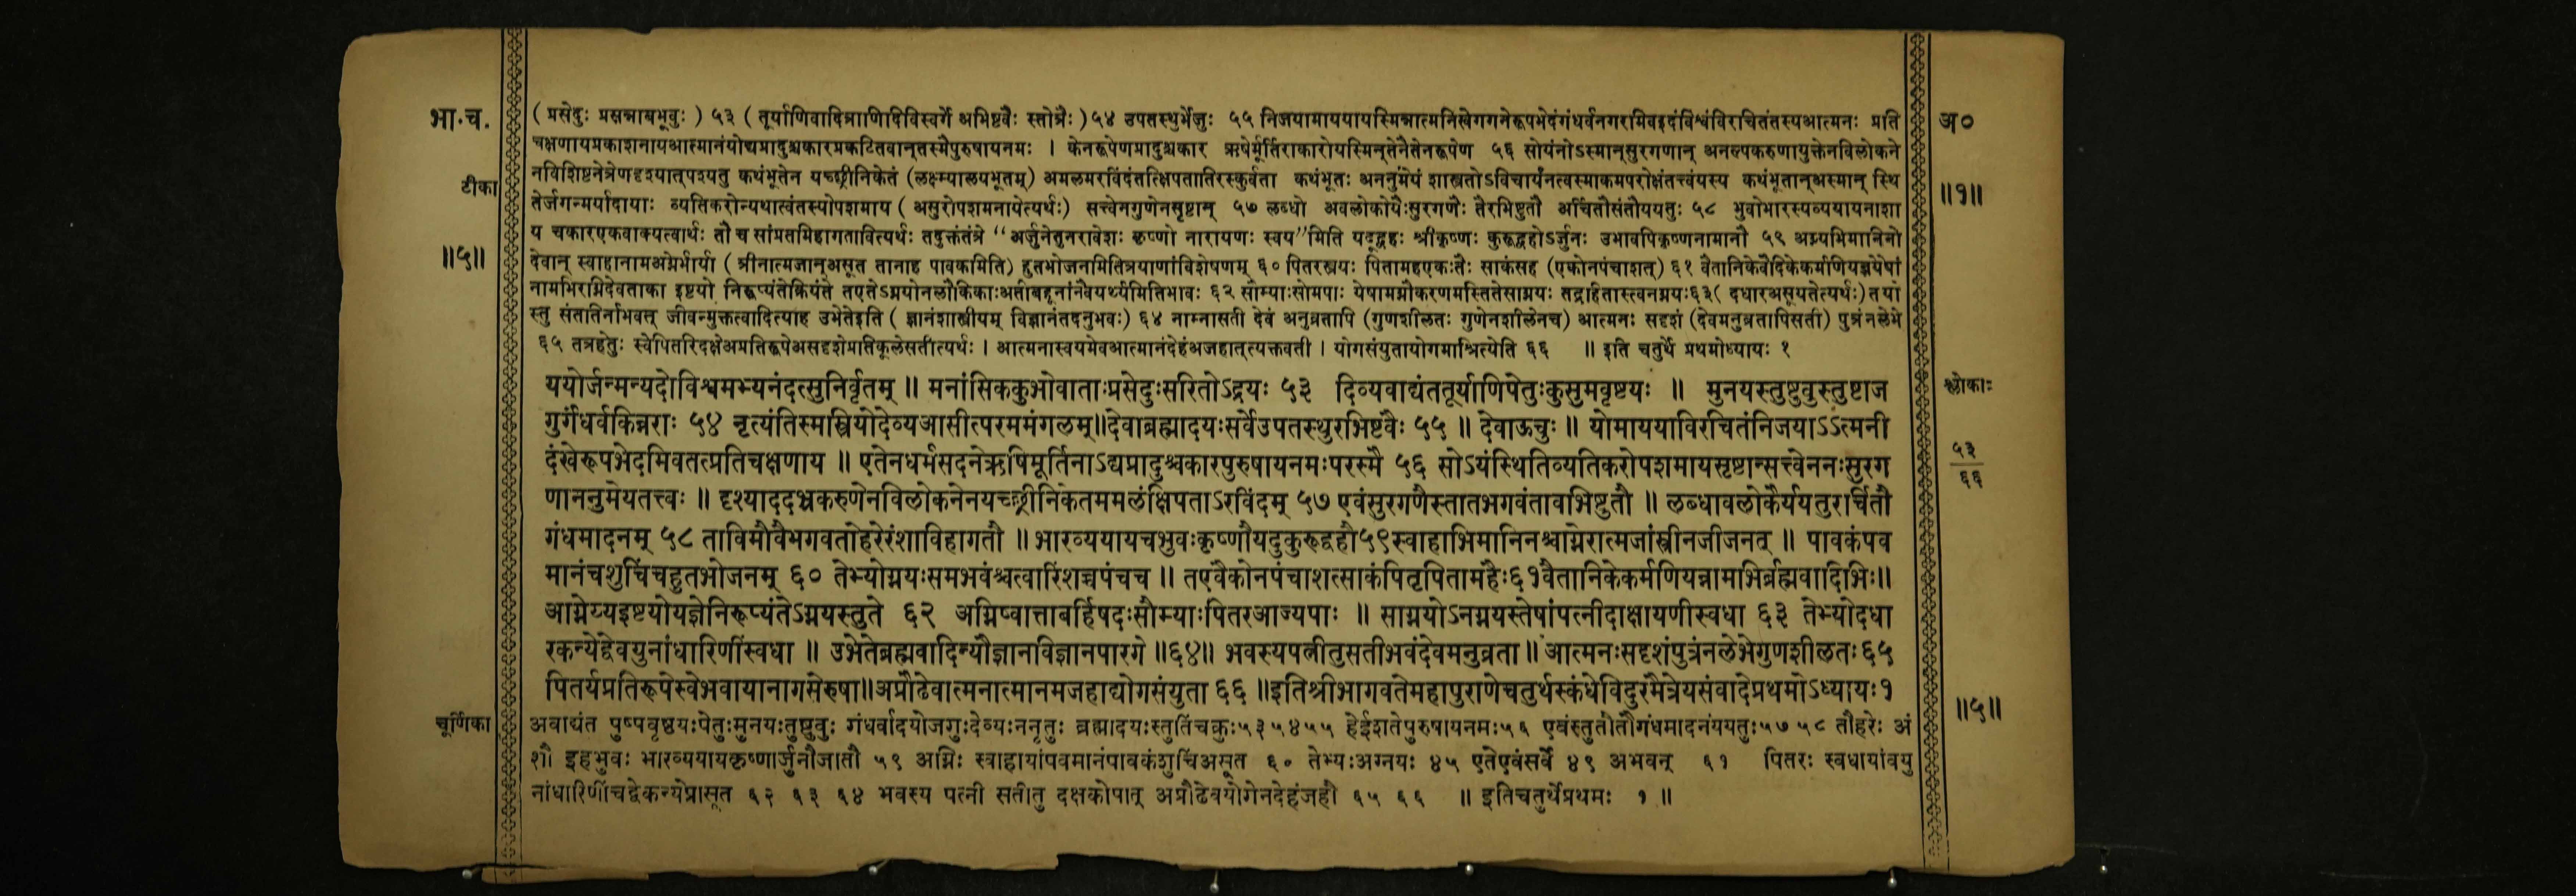 भा.च.
टीका
॥५॥
( प्रसेदुः प्रसन्नाबभूवुः ) ५३ ( तूर्याणिवादित्राणिदिविस्वर्गे अभिष्टवैः स्तोत्रैः ) ५४ उपतस्थुर्भेजुः ५५ निजयामाययायस्मिन्नात्मनिखेगगनेरूपभेदंगंधर्वनगरमिवइदंविश्वंविरचितंतस्यआत्मनः प्रति
चक्षणायप्रकाशनायआत्मानंयोद्यप्रादुश्चकारप्रकटितवान्तस्मैपुरुषायनमः । केनरूपेणप्रादुश्चकार ऋषेर्मूर्तिराकारोयस्मिन्तेनैतेनरूपेण ५६ सोयंनोऽस्मान्सुरगणान् अनल्पकरुणायुक्तेनविलोकने
नविशिष्टनेत्रेणदृश्यात्पश्यतु कथंभूतेन यच्छ्रीनिकेतं (लक्ष्म्यालयभूतम्) अमलमरविंदंतत्क्षिपतातिरस्कुर्वता कथंभूतः अननुमेयं शास्त्रतोऽविचार्यंनत्वस्माकमपरोक्षंतत्त्वंयस्य कथंभूतान्अस्मान् स्थि
तेर्जगन्मर्यादायाः व्यतिकरोन्यथात्वंतस्योपशमाय ( असुरोपशमनायेत्यर्थः) सत्त्वेनगुणेनसृष्टान् ५७ लब्धो अवलोकोयैःसुरगणैः तैरभिष्टुतौ अर्चितौसंतौययतुः ५८ भुवोभारस्यव्ययायनाशा
य चकारएकवाक्यत्वार्थः तौ च सांप्रतमिहागतावित्यर्थः तदुक्तंतंत्रे “अर्जुनेतुनरावेशः कृष्णो नारायणः स्वय”मिति यदूद्वहः श्रीकृष्णः कुरूद्वहोऽर्जुनः उभावपिकृष्णनामानौ ५९ अग्न्यभिमानिनो
देवान् स्वाहानामअग्नेर्भार्या ( त्रीनात्मजान्असूत तानाह पावकमिति) हुतभोजनमितित्रयाणांविशेषणम् ६० पितरस्त्रयः पितामहएकःतैः साकंसह (एकोनपंचाशत्) ६१ वैतानिकेवैदिकेकर्मणियज्ञेयेषां
नामभिरग्निदेवताका इष्टयो निरूप्यंतेक्रियंते तएतेऽग्नयोनलौकिकाःअतोबहूनांनवैयर्थ्यमितिभावः ६२ सौम्याःसोमपाः येषामग्नौकरणमस्तितेसाग्नयः तद्रहितास्त्वनग्नयः६३( दधारअसूयतेत्यर्थः)तयो
स्तु संततिर्नाभवत् जीवन्मुक्तत्वादित्याह उभेतेइति ( ज्ञानंशास्त्रीयम् विज्ञानंतदनुभवः) ६४ नाम्नासती देवं अनुव्रतापि (गुणशीलतः गुणेनशीलेनच) आत्मनः सदृशं (देवमनुव्रतापिसती) पुत्रंनलेभे
६५ तत्रहेतुः स्वेपितरिदक्षेअप्रतिरूपेअसदृशेप्रतिकूलेसतीत्यर्थः । आत्मनास्वयमेवआत्मानंदेहंअजहात्त्यक्तवती । योगसंयुतायोगमाश्रित्येति ६६ ॥ इति चतुर्थे प्रथमोध्यायः १
ययोर्जन्मन्यदोविश्वमभ्यनंदत्सुनिर्वृतम् ॥ मनांसिककुभोवाताःप्रसेदुःसरितोऽद्रयः ५३ दिव्यवाद्यंततूर्याणिपेतुःकुसुमवृष्टयः ॥ मुनयस्तुष्टुवुस्तुष्टाज
गुर्गंधर्वकिन्नराः ५४ नृत्यंतिस्मस्त्रियोदेव्यआसीत्परममंगलम्॥देवाब्रह्मादयःसर्वेउपतस्थुरभिष्टवैः ५५ ॥ देवाऊचुः ॥ योमाययाविरचितंनिजयाऽऽत्मनी
दंखेरूपभेदमिवतत्प्रतिचक्षणाय ॥ एतेनधर्मसदनेऋषिमूर्तिनाऽद्यप्रादुश्चकारपुरुषायनमःपरस्मै ५६ सोऽयंस्थितिव्यतिकरोपशमायसृष्टान्सत्त्वेननःसुरग
णाननुमेयतत्त्वः ॥ दृश्याददभ्रकरुणेनविलोकनेनयच्छ्रीनिकेतममलंक्षिपताऽरविंदम् ५७ एवंसुरगणैस्तातभगवंतावभिष्टुतौ ॥ लब्धावलोकैर्ययतुरर्चितौ
गंधमादनम् ५८ ताविमौवैभगवतोहरेरंशाविहागतौ ॥ भारव्ययायचभुवःकृष्णौयदुकुरूद्वहौ५९स्वाहाभिमानिनश्चाग्नेरात्मजांस्त्रीनजीजनत् ॥ पावकंपव
मानंचशुचिंचहुतभोजनम् ६० तेभ्योग्नयःसमभवंश्चत्वारिंशच्चपंचच ॥ तएवैकोनपंचाशत्साकंपितृपितामहैः६१वैतानिकेकर्मणियन्नामभिर्ब्रह्मवादिभिः॥
आग्नेय्यइष्टयोयज्ञेनिरूप्यंतेऽग्नयस्तुते ६२ अग्निष्वात्ताबर्हिषदःसौम्याःपितरआज्यपाः ॥ साग्नयोऽनग्नयस्तेषांपत्नीदाक्षायणीस्वधा ६३ तेभ्योदधा
रकन्येद्वेवयुनांधारिणींस्वधा ॥ उभेतेब्रह्मवादिन्यौज्ञानविज्ञानपारगे ॥६४॥ भवस्यपत्नीतुसतीभवंदेवमनुव्रता ॥ आत्मनःसदृशंपुत्रंनलेभेगुणशीलतः ६५
पितर्यप्रतिरूपेस्वेभवायानागसेरुषा॥अप्रौढैवात्मनात्मानमजहाद्योगसंयुता ६६ ॥इतिश्रीभागवतेमहापुराणेचतुर्थस्कंधेविदुरमैत्रेयसंवादेप्रथमोऽध्यायः१
चूर्णिका
अवाद्यंत पुष्पवृष्टयःपेतुःमुनयःतुष्टुवुः गंधर्वादयोजगुःदेव्यःननृतुः ब्रह्मादयःस्तुतिंचक्रुः५३५४५५ हेईशतेपुरुषायनमः५६ एवंस्तुतौतौगंधमादनंययतुः५७ ५८ तौहरेः अं
शौ इहभुवः भारव्ययायकृष्णार्जुनौजातौ ५९ अग्निः स्वाहायांपवमानंपावकंशुचिंअसूत ६० तेभ्यःअग्नयः ४५ एतेएवंसर्वे ४९ अभवन् ६१ पितरः स्वधायांवयु
नांधारिणींचद्वेकन्येप्रासूत ६२ ६३ ६४ भवस्य पत्नी सतीतु दक्षकोपात् अप्रौढैवयोगेनदेहंजहौ ६५ ६६ ॥ इतिचतुर्थेप्रथमः १ ॥
अ०
॥१॥
श्लोकाः
५३
६६
॥५॥